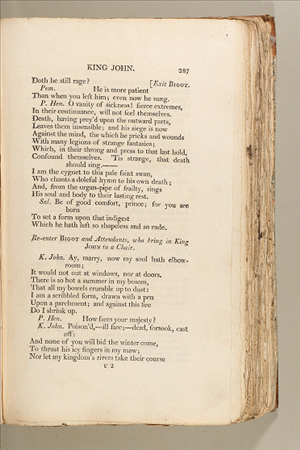 KING JOHN. 287
Doth he still rage? [Exit BIGOT.
Pem. He is more patient
Than when you left him; even now he sung.
P. Hen. O vanity of sickness! fierce extremes,
In their continuance, will not feel themselves.
Death, having prey'd upon the outward parts,
Leaves them insensible; and his siege is now
Against the mind, the which he pricks and wounds
With many legions of strange fantasies;
Which, in their throng and press to that last hold,
Confound themselves. 'Tis strange, that death
should sing.——
I am the cygnet to this pale faint swan,
Who chants a doleful hymn to his own death;
And, from the organ-pipe of frailty, sings
His soul and body to their lasting rest.
Sal. Be of good comfort, prince; for you are
born
To set a form upon that indigest
Which he hath left so shapeless and so rude.
Re-enter BIGOT and Attendants, who bring in King
JOHN in a Chair.
K. John. Ay, marry, now my soul hath elbow-
room;
It would not out at windows, nor at doors.
There is so hot a summer in my bosom,
That all my bowels crumble up to dust:
I am a scribbled form, drawn with a pen
Upon a parchment; and against this fire
Do I shrink up.
P. Hen. How fares your majesty?
K. John. Poison'd,—ill fare;—dead, forsook, cast
off:
And none of you will bid the winter come,
To thrust his icy fingers in my maw;
Nor let my kingdom's rivers take their course
U 2